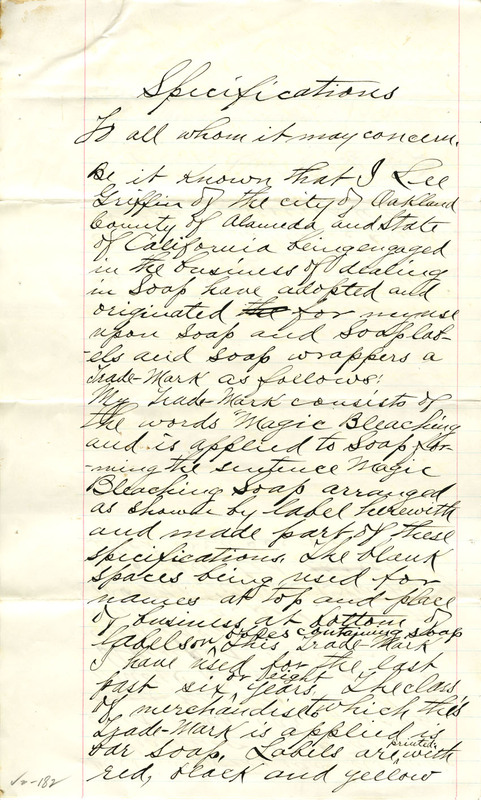 Specifications
To all whom it may concern.
Be it known that I Lee
Griffin of the city of Oakland
County of Alameda and State
of California being engaged
in the business of dealing
in Soap have adopted and
originated the for my use
upon Soap and Soap lab-
-els and Soap wrappers a
Trade-Mark as follows:
My Trade-Mark consists of
the words Magic Bleaching
and is applied to Soap for-
-ming the sentence Magic
Bleaching Soap arranged
as shown by label herewith
and made part of these
specifications. The blank
spaces being used for
names at top and place
of business at bottom of
labels on boxes containing soap
This Trade-Mark
I have used for the last
past six or eight years. The class
of merchandise to which this
Trade-Mark is applied is
bar soap. Labels are printed with
red, black and yellow
-182